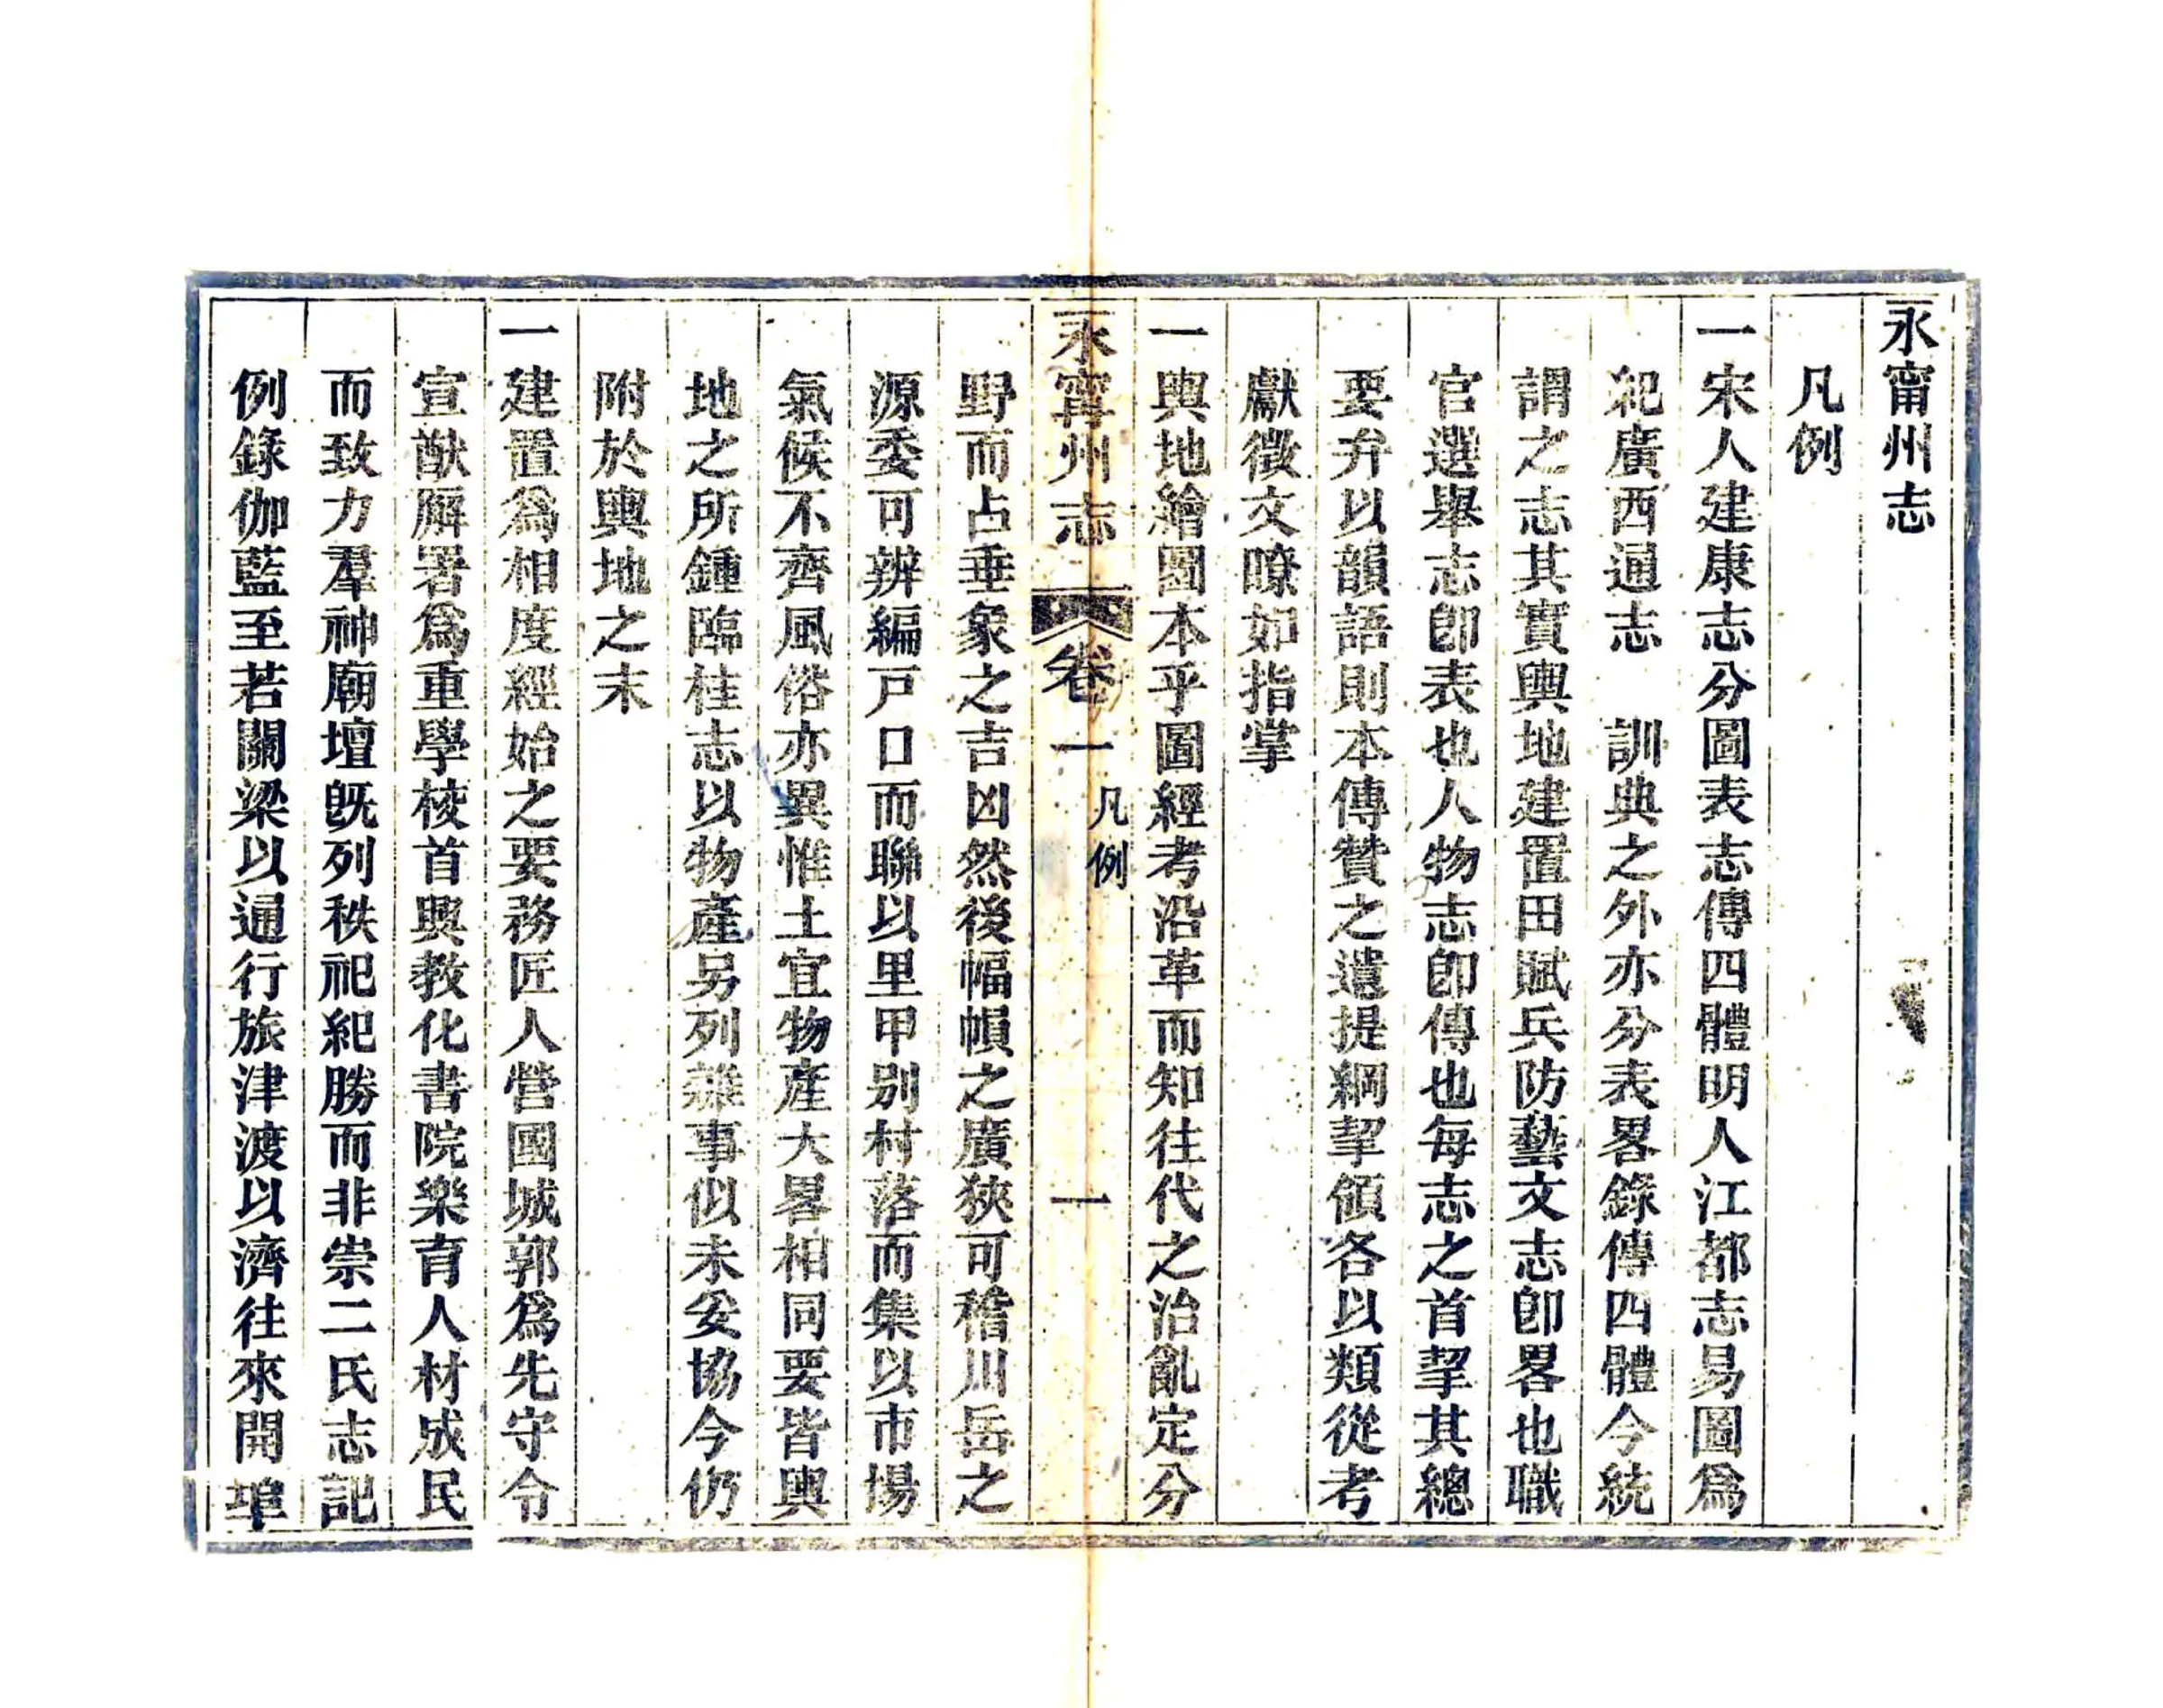 永甯州志
凡例
一宋人建康志分圖表志傳四體明人江都志易圖爲
紀廣西通志　訓典之外亦分表畧錄傳四體今統
謂之志其實輿地建置田賦兵防藝文志卽畧也職
官選舉志卽表也人物志卽傳也每志之首挈其總
要弁以韻語則本傳贊之遺提綱挈領各以類從考
獻徵文瞭如指掌
一輿地繪圖本乎圖經考沿革而知往代之治亂定分
永甯州志　卷一　凡例　一
野而占垂象之吉凶然後幅幀之廣狹可稽川岳之
源委可辨編戸口而聯以里甲别村落而集以市場
氣候不齊風俗亦異惟土宜物產大畧相同要皆輿
地之所鍾臨桂志以物產另列雜事似未妥協今仍
附於輿地之末
一建置爲相度經始之要務匠人營國城郭爲先守令
宣猷廨署爲重學校首興教化書院樂育人材成民
而致力羣神廟壇旣列秩祀紀勝而非崇二氏志記
例錄伽藍至若關梁以通行旅津渡以濟往來開埠